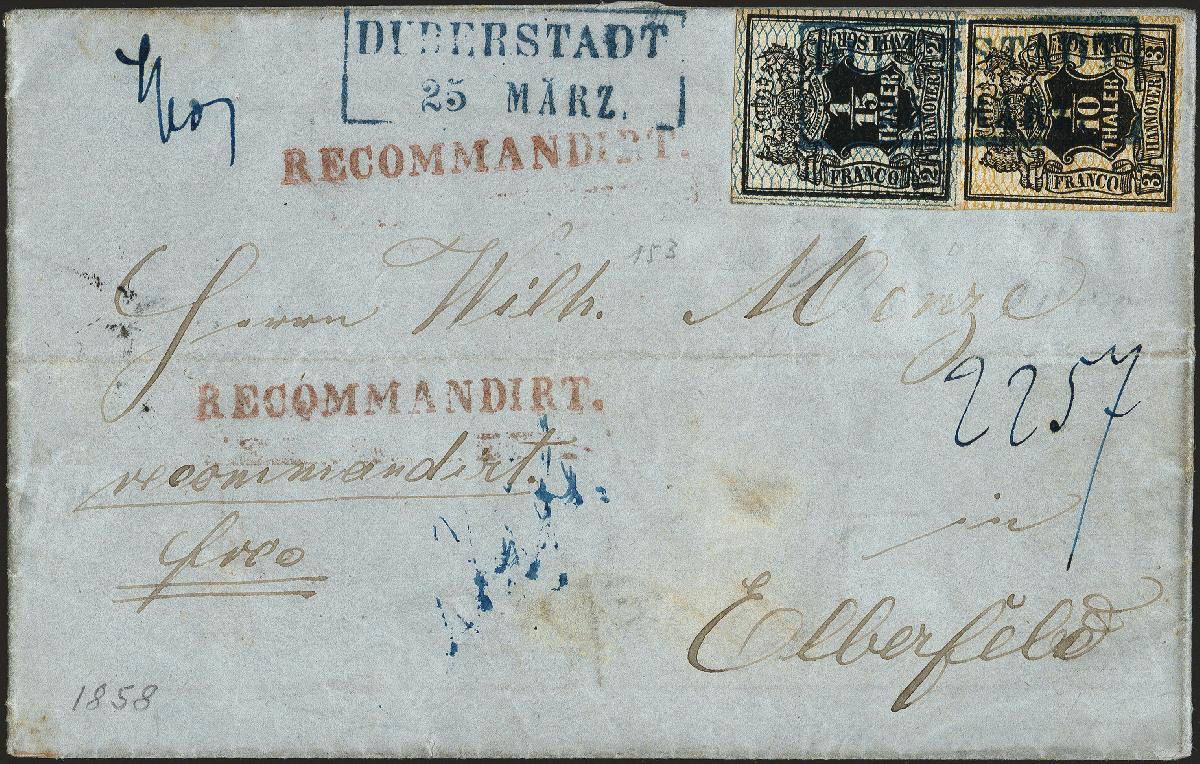 DUDERSTADT
25 MÄRZ.
RECOMMANDIRT.
HANNOVER
1/15 THALER
FRANCO
2
2
HANNOVER
1/10 THALER
FRANCO
3
3
153
Herrn Wilh. Menze
RECOMMANDIRT.
2257
recommandirt.
frco
in
Elberfeld
1858